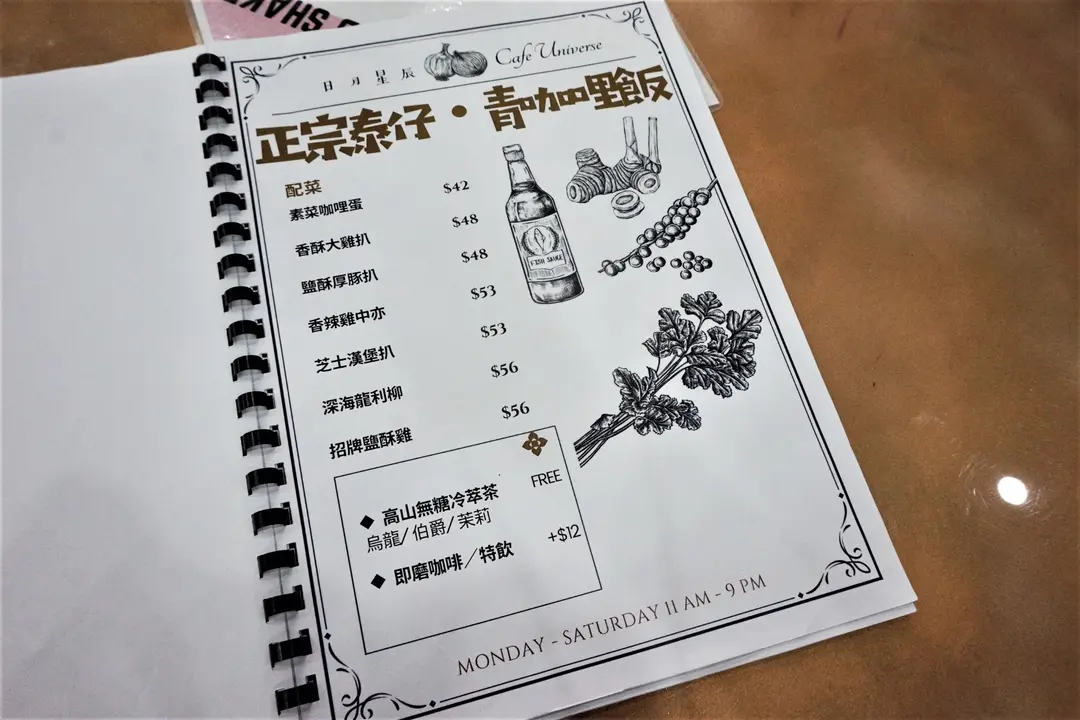 SHAK
日月星辰 Cafe Universe
正宗泰仔・青咖喱飯
配菜
素菜咖哩蛋 $42
香酥大雞扒 $48
鹽酥厚豚扒 $48
香辣雞中亦 $53
芝士漢堡扒 $53
深海龍利柳 $56
招牌鹽酥雞 $56
FISH SAUCE
◆ 高山無糖冷萃茶 FREE
烏龍/伯爵/茉莉
◆ 即磨咖啡/特飲 +$12
MONDAY - SATURDAY 11 AM - 9 PM